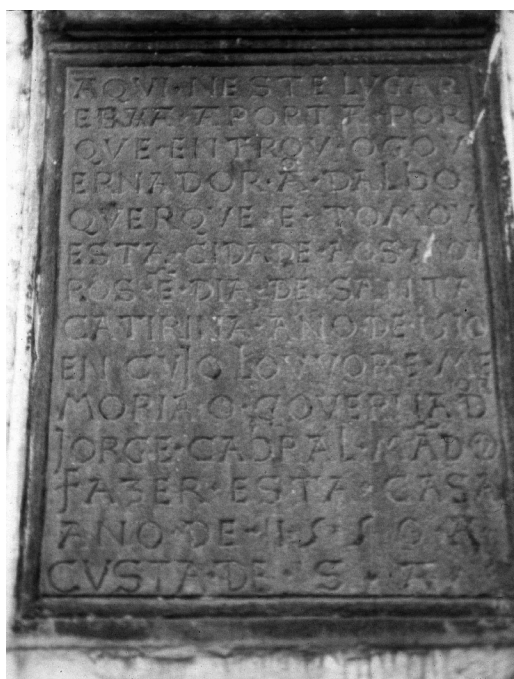 AQVI·NESTE LVGAR
ESTAVA·APORTA·POR
QVE·ENTROV·OGOV
ERNADOR·Ã·DALBO
QVERQVE·E·TOMOV
ESTA·CIDADE·AOS·MOV
ROS·Ẽ·DIA·DE·SANTA
CATIRINA·ANO·DE·1510
EN CVJO·LOVVOR·E·ME
MORIA·O·GOVERNAD
JORGE·CABRAL·MÃDO
FAZER·ESTA·CASA
ANO·DE·1550·A
CVSTA·DE·S·A·